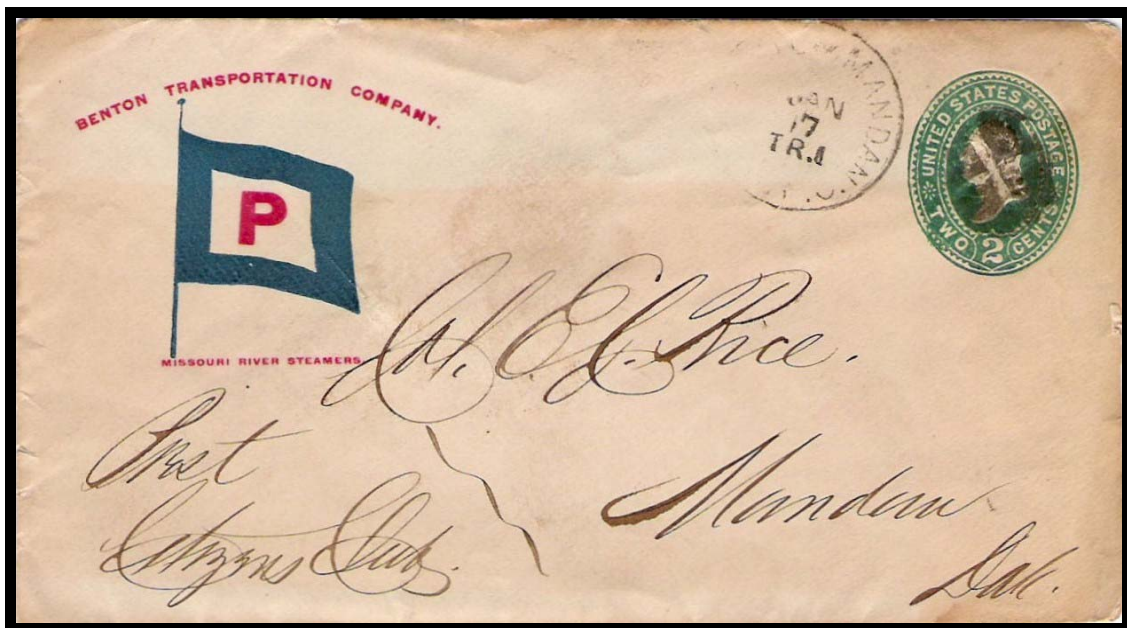 BENTON TRANSPORTATION COMPANY.
P
MISSOURI RIVER STEAMERS
MANDAN
JAN
17
TR.1
R.P.O.
UNITED STATES POSTAGE
TWO 2 CENTS
Col. E. L. Price.
Prest
Citizens Club.
Mandan
Dak.